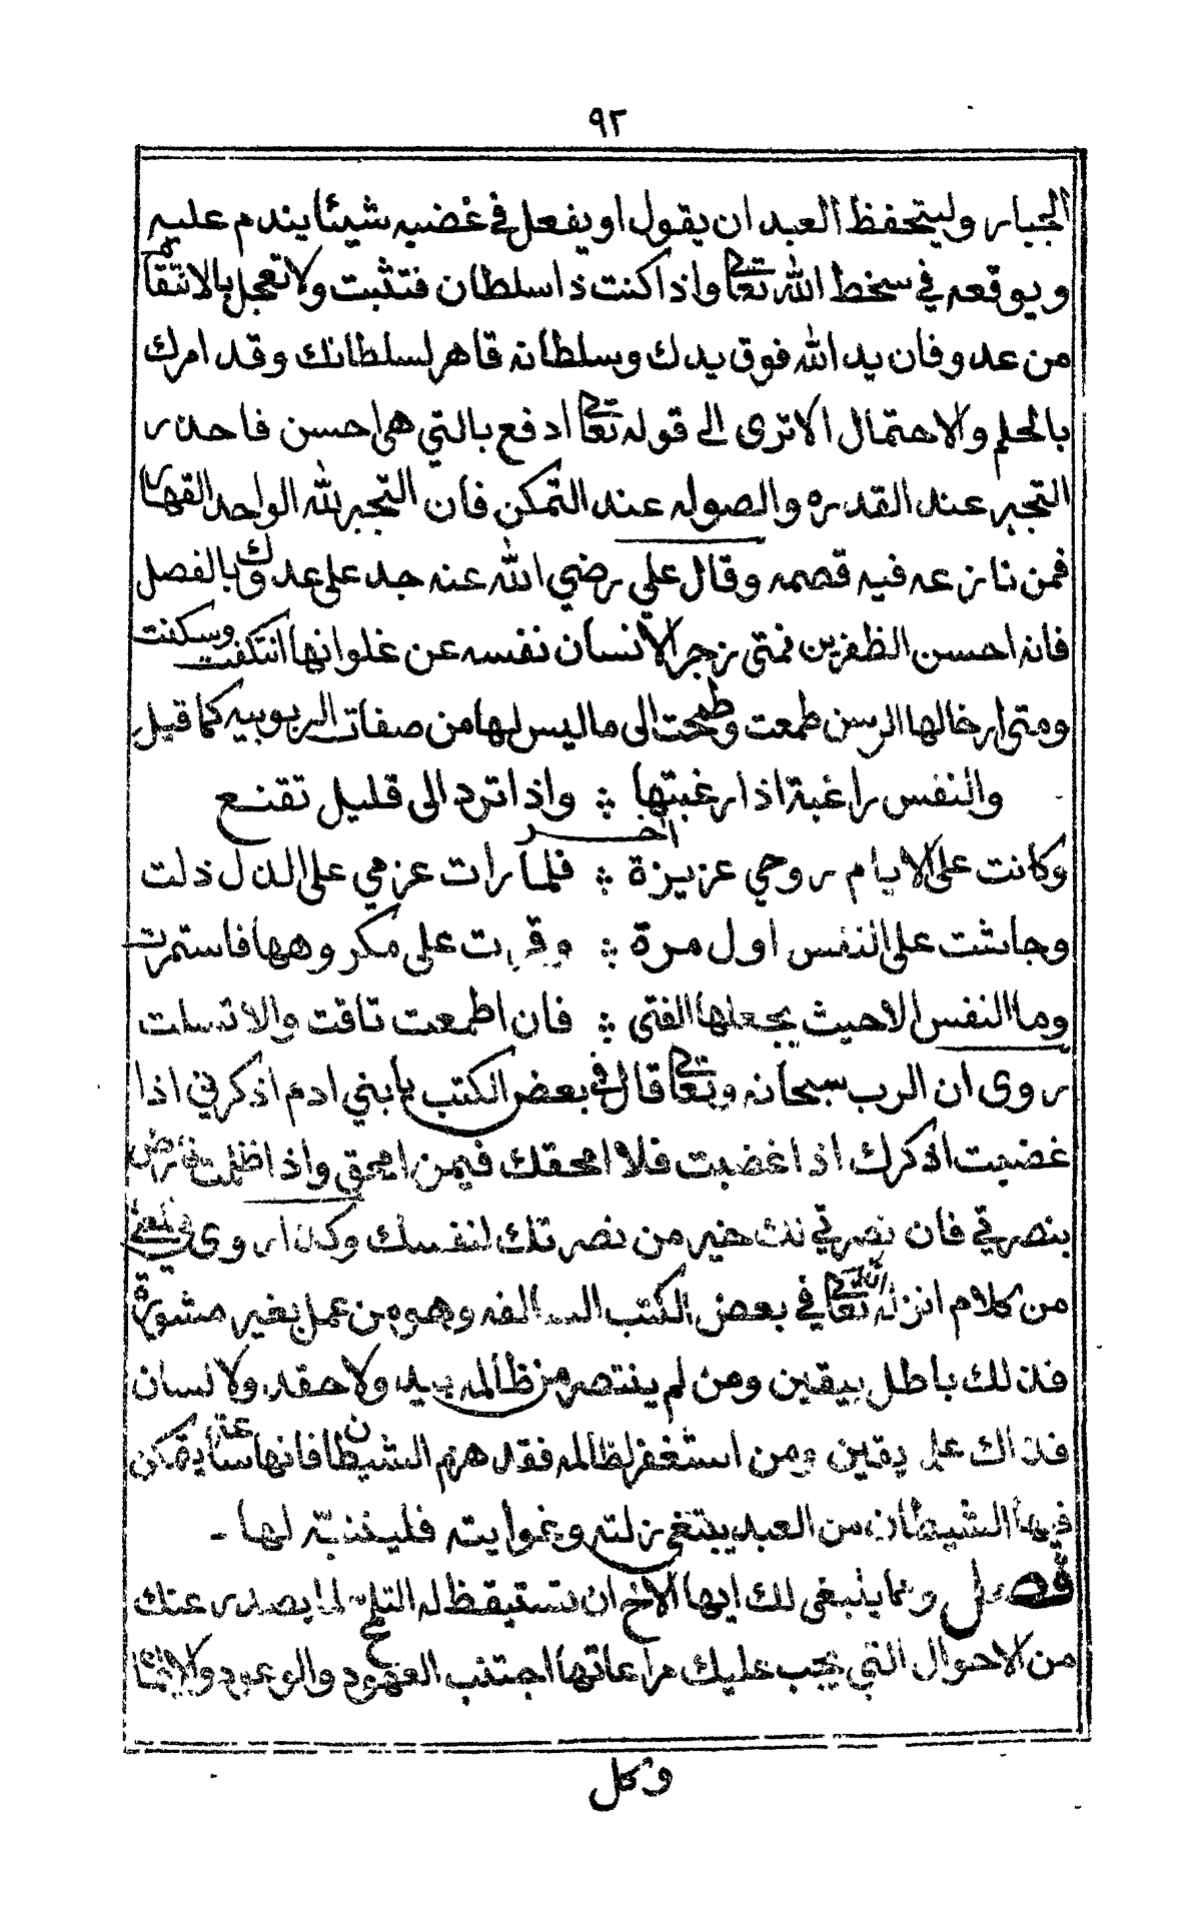 ٩٢
الجبار وليتحفظ العبد ان يقول او يفعل في غضبه شيئا يندم عليه
ويوقعه في سخط الله تعالى واذا كنت ذا سلطان فتثبت ولا تعجل بالانتقام
من عدو فان يد الله فوق يدك وسلطانه قاهر لسلطانك وقد امرك
بالحلم والاحتمال الا ترى الى قوله تعالى ادفع بالتي هي احسن فاحذر
التجبر عند القدره والصوله عند التمكن فان التجبر لله الواحد القهار
فمن نازعه فيه قصمه وقال علي رضي الله عنه جد على عدوك بالفصل
فانه احسن الظفرين فمتى زجر الانسان نفسه عن غلوانها انتكفت وسكنت
ومتى ارخا لها الرسن طمعت وطمحت الى ما ليس لها من صفات الربوبيه كما قيل
والنفس راغبة اذا رغبتها ؞ واذا ترد الى قليل تقنع
اخر
وكانت على الايام روحي عزيزة ؞ فلما رات عزمي على الذل ذلت
وجاشت على النفس اول مرة ؞ وقرت على مكروهها فاستمرت
وما النفس الا حيث يجعلها الفتى ؞ فان اطمعت تاقت والا تسلت
روى ان الرب سبحانه وتعالى قال في بعض الكتب يا بني ادم اذكرني اذا
غضبت اذكرك اذا غضبت فلا امحقك فيمن امحق واذا ظلمت فارض
بنصرتي فان نصرتي لك خير من نصرتك لنفسك وكذا روى
من كلام انزله الله تعالى في بعض الكتب السالفه وهو من عمل بغير مشورة
فذلك باطل بيقين ومن لم ينتصر من ظالمه بيد ولا حقد ولا لسان
فذاك على يقين ومن استغفر لظالمه فقد هزم الشيطان فانها ساعة يتمكن
فيها الشيطان من العبد يبتغي زلته وغوايته فليتنبه لها -
فصل ومما ينبغي لك ايها الاخ ان تستيقظ له لما يصدر عنك
من الاحوال التي يجب عليك مراعاتها اجتنب العهود والوعود والايمان
وكل